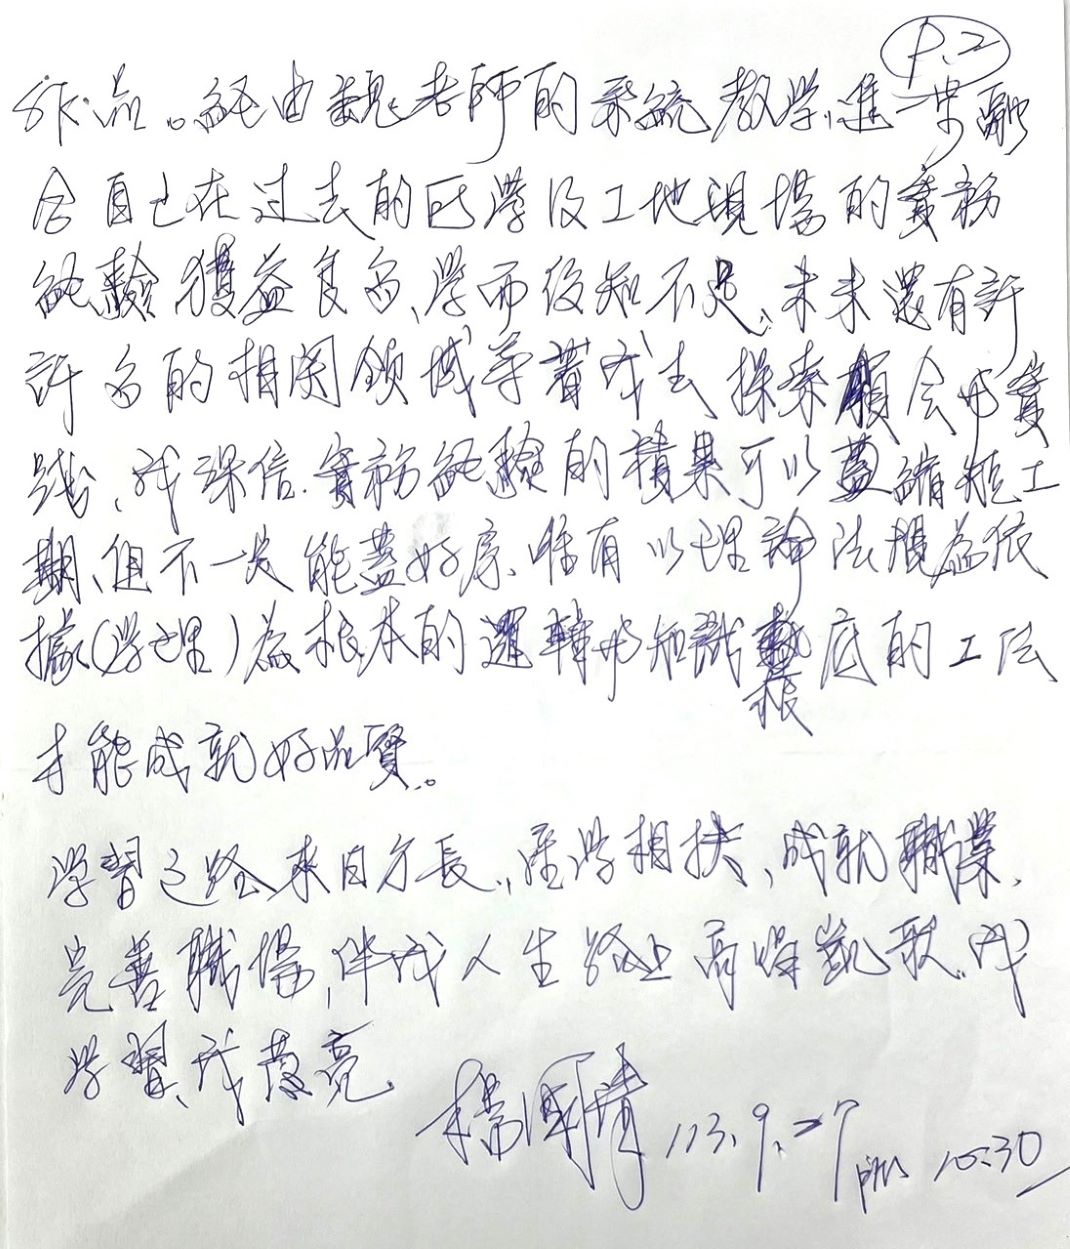 P.2
作品。經由魏老師的系統教學,進一步融
合自己在过去的所學及工地現場的實務
經驗獲益良多、学而後知不足、未來還有許
許多的相関領域等著我去探索領会与實
踐、我深信.實務經驗的積累可以縮短工
期、但不一定能蓋好房、惟有以理論法規為依
據(学理)為根本的邏輯与知識根底的工法
才能成就好品質。
学習之路來日方長,產学相扶,成就職業,
完善職場,伴我人生路上高唱凱歌,我
学習、我發亮
楊國靖 113.9.27 pm 10:30